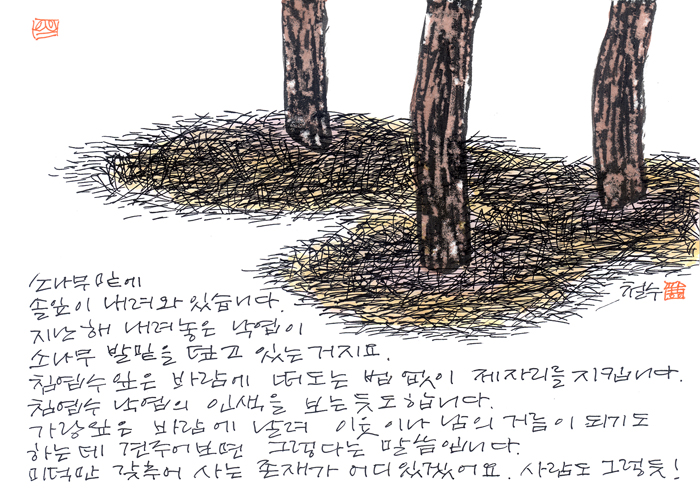 소나무 밑에
솔잎이 내려와 있습니다.
지난 해 내려놓은 낙엽이
소나무 발밑을 덮고 있는거지요.
침엽수 잎은 바람에 떠도는 법 없이 제자리를 지킵니다.
침엽수 낙엽의 인색을 보는듯도 합니다.
가랑잎은 바람에 날려 이웃이나 남의 거름이 되기도
하는데 견주어보면 그렇다는 말씀입니다.
미덕만 갖추어 사는 존재가 어디있겠어요. 사람도 그렇듯!
철수